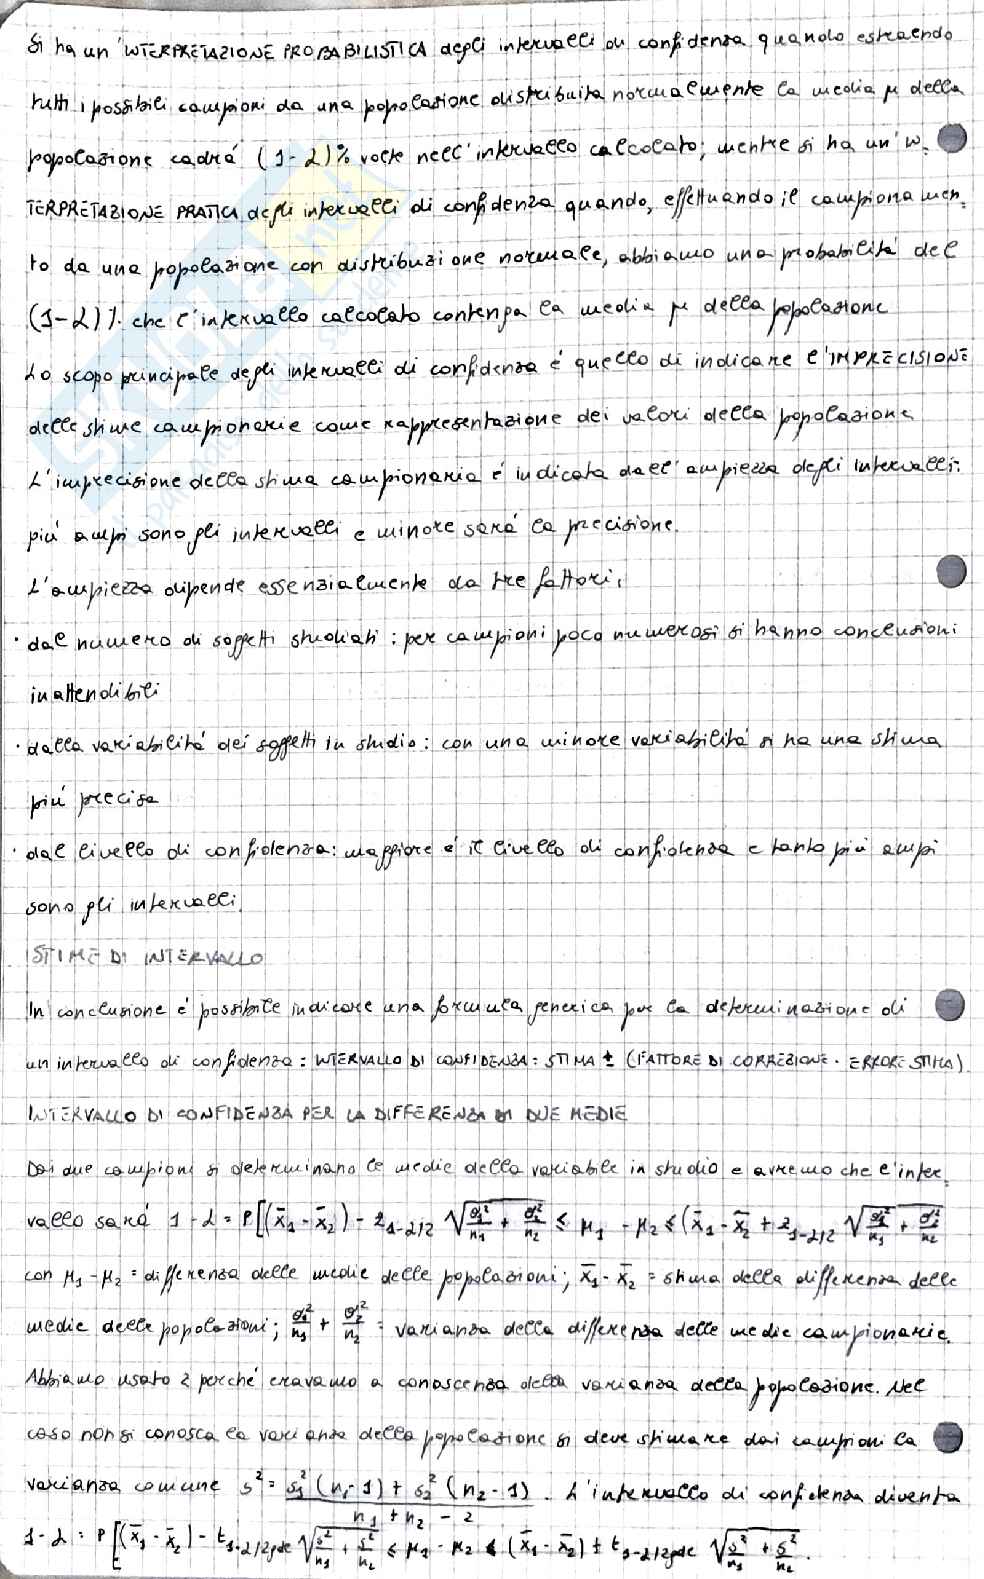 Si ha un' INTERPRETAZIONE PROBABILISTICA degli intervalli di confidenza quando estraendo
tutti i possibili campioni da una popolazione distribuita normalmente la media μ della
popolazione cadrá (1-α)% volte nell'intervallo calcolato; mentre si ha un' IN-
TERPRETAZIONE PRATICA degli intervalli di confidenza quando, effettuando il campionamen-
to da una popolazione con distribuzione normale, abbiamo una probabilitá del
(1-α)% che l'intervallo calcolato contenga la media μ della popolazione
Lo scopo principale degli intervalli di confidenza é quello di indicare l'IMPRECISIONE
delle stime campionarie come rappresentazione dei valori della popolazione
L'imprecisione della stima campionaria é indicata dall'ampiezza degli intervalli:
piú ampi sono gli intervalli e minore sará la precisione.
L'ampiezza dipende essenzialmente da tre fattori:
· dal numero di soggetti studiati: per campioni poco numerosi si hanno conclusioni
inattendibili
· dalla variabilitá dei soggetti in studio: con una minore variabilitá si ha una stima
piú precisa
· dal livello di confidenza: maggiore é il livello di confidenza e tanto piú ampi
sono gli intervalli.
STIME DI INTERVALLO
In conclusione é possibile indicare una formula generica per la determinazione di
un intervallo di confidenza: INTERVALLO DI CONFIDENZA: STIMA ± (FATTORE DI CORREZIONE · ERRORE STIMA).
INTERVALLO DI CONFIDENZA PER LA DIFFERENZA DI DUE MEDIE
Dai due campioni si determinano le medie della variabile in studio e avremo che l'inter-
vallo sará 1-α = P[(x̄₁-x̄₂) - z₁₋α/₂ √(σ₁²/n₁ + σ₂²/n₂) ≤ μ₁ - μ₂ ≤ (x̄₁-x̄₂ + z₁₋α/₂ √(σ₁²/n₁ + σ₂²/n₂)
con μ₁-μ₂ = differenza delle medie delle popolazioni; x̄₁-x̄₂ = stima della differenza delle
medie delle popolazioni; σ₁²/n₁ + σ₂²/n₂ = varianza della differenza delle medie campionarie.
Abbiamo usato z perché eravamo a conoscenza della varianza della popolazione. Nel
caso non si conosca la varianza della popolazione si deve stimare dai campioni la
varianza comune s² = s₁²(n₁-1) + s₂²(n₂-1) / n₁+n₂-2. L'intervallo di confidenza diventa
1-α = P[(x̄₁-x̄₂) - t₁₋α/₂ gdl √(s²/n₁ + s²/n₂) ≤ μ₁-μ₂ ≤ (x̄₁-x̄₂) ± t₁₋α/₂ gdl √(s²/n₁ + s²/n₂).